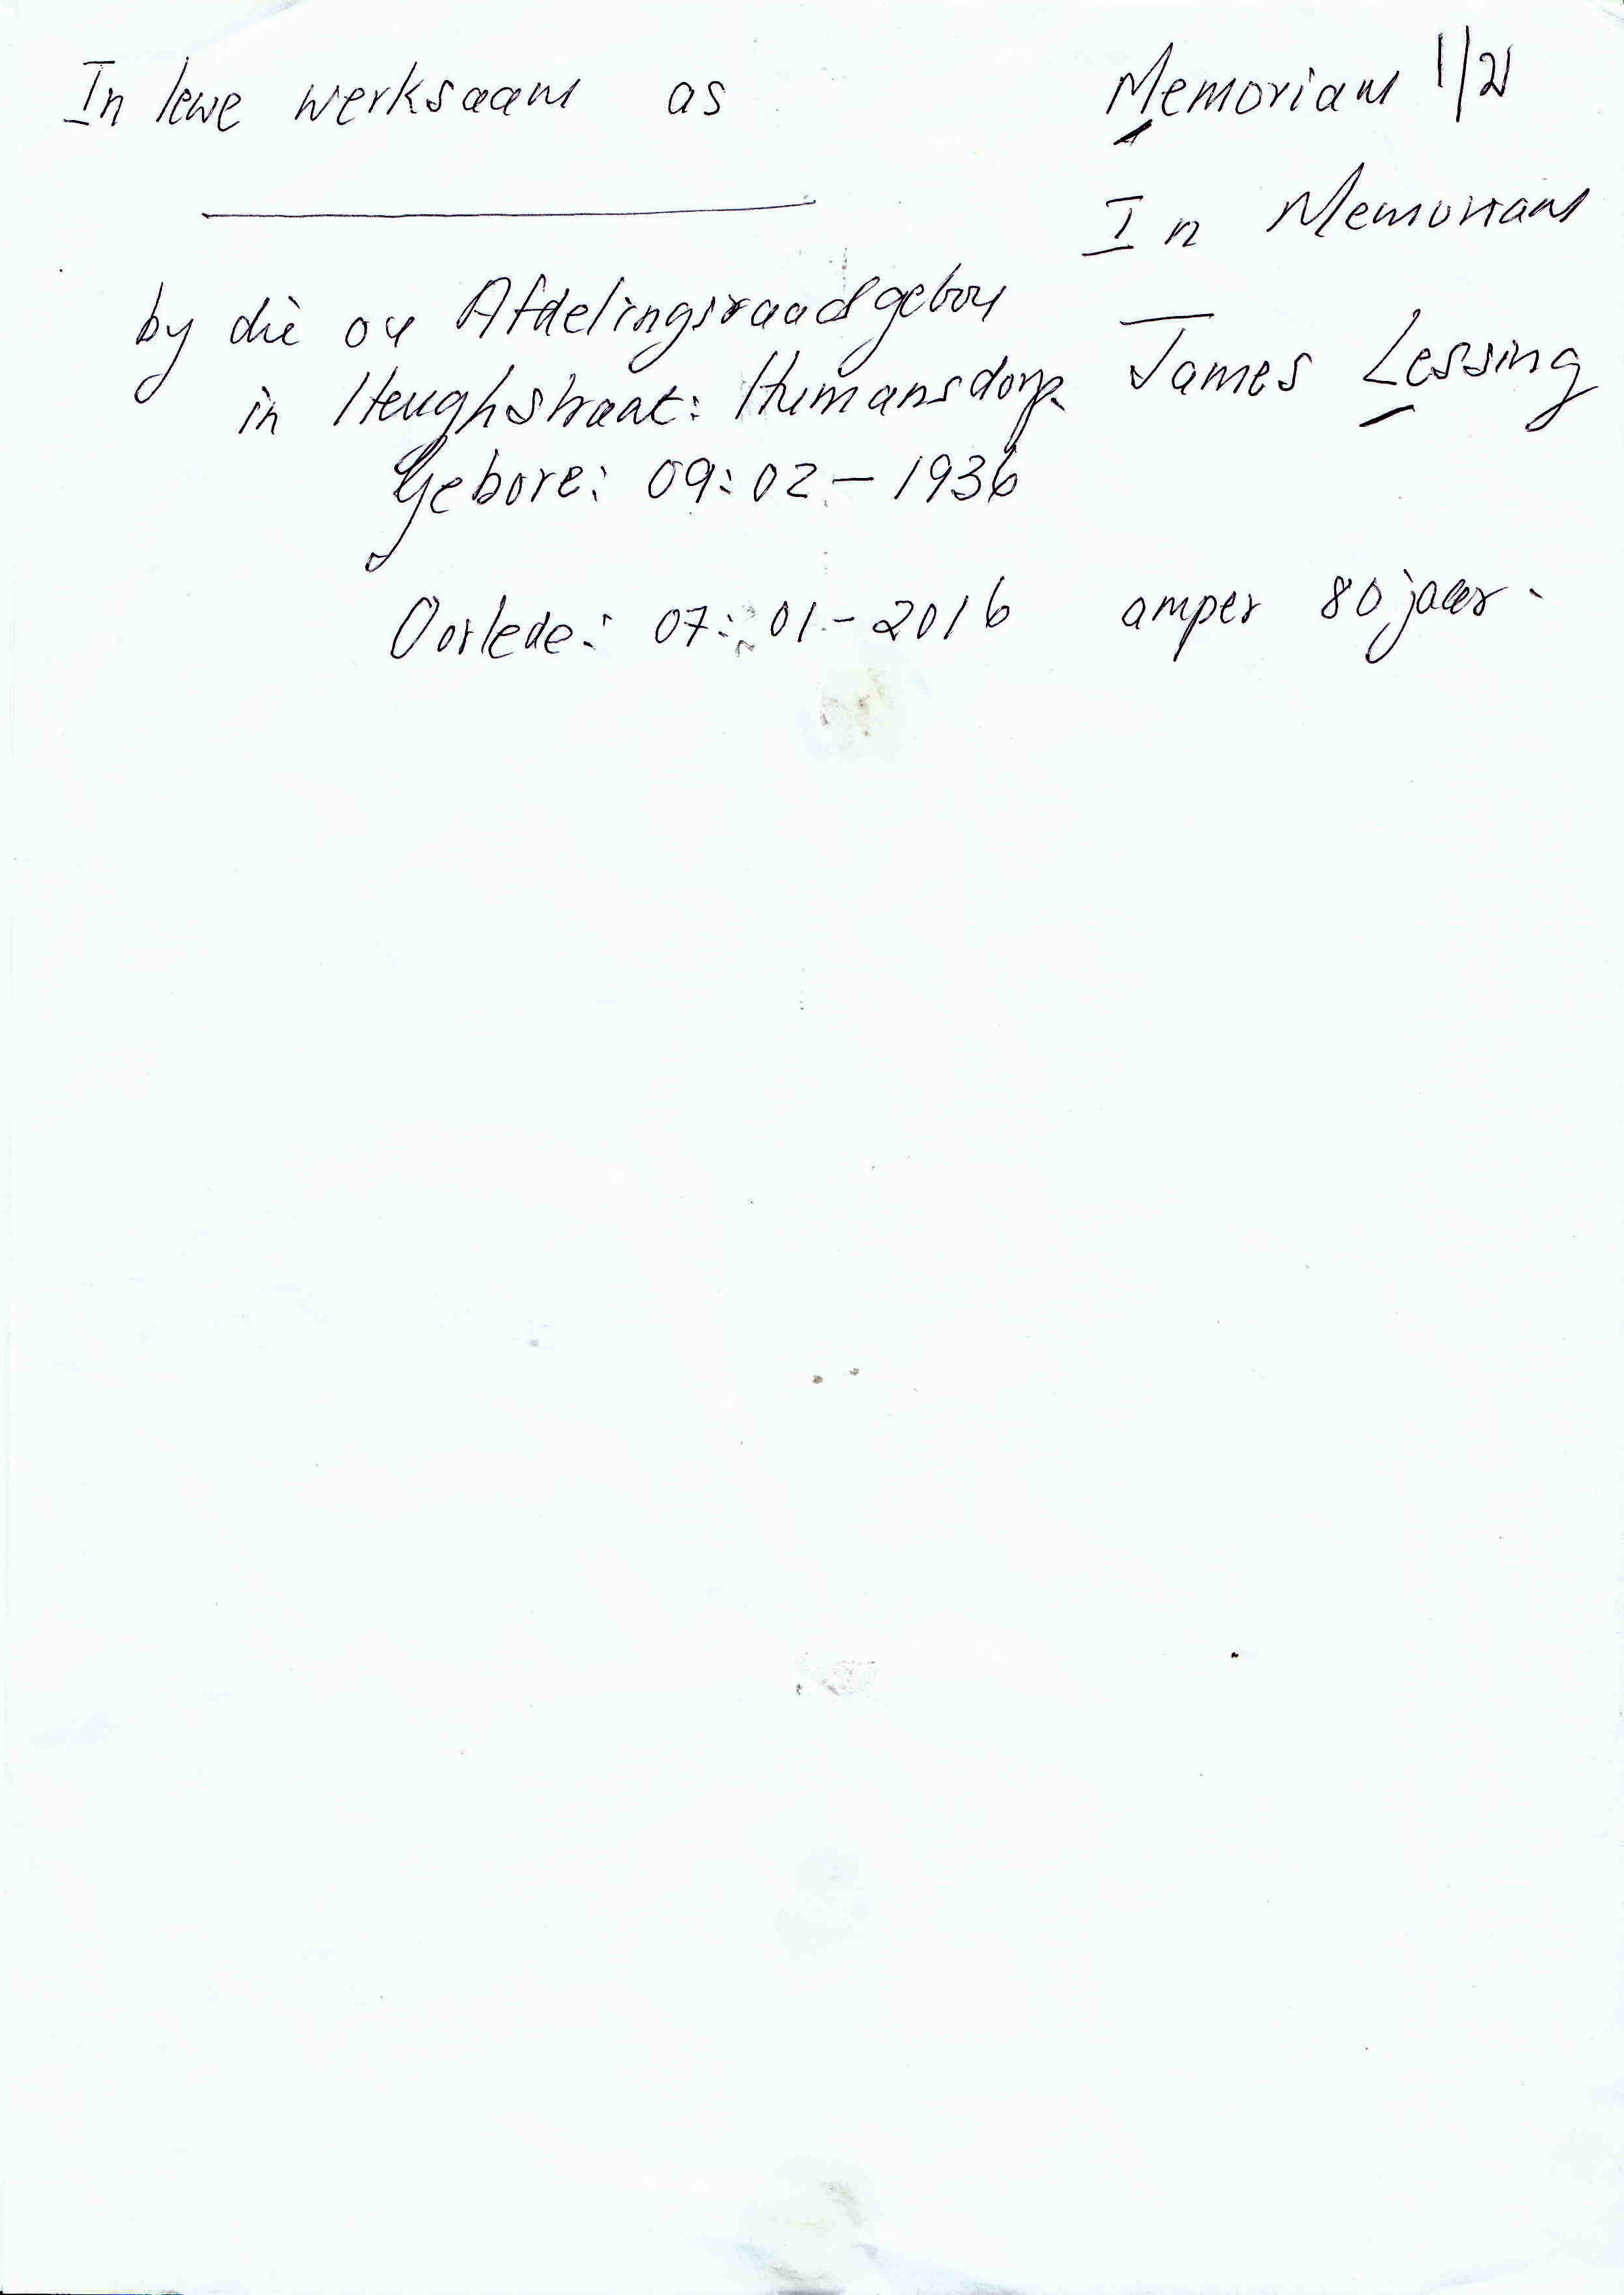 In lewe werksaam as
Memoriam 1/21
In Memoriam
by die ou Afdelingsraadgebou
James Lessing
in Heughstraat: Humansdorp.
Gebore: 09:02-1936
Oorlede: 07:01-2016 amper 80 jaar.